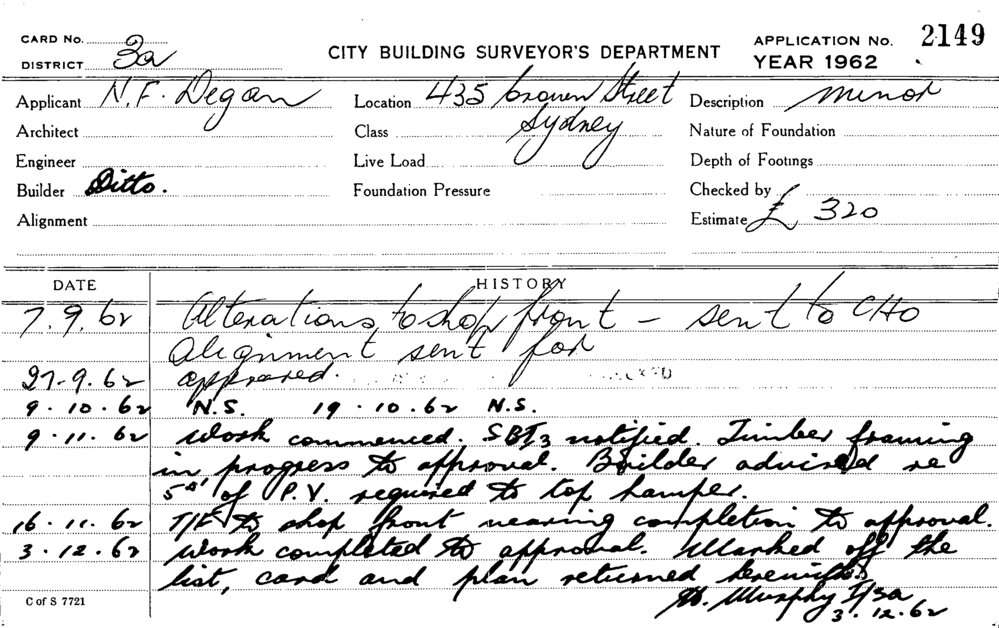 CARD No.
DISTRICT 3a
CITY BUILDING SURVEYOR'S DEPARTMENT
APPLICATION No. 2149
YEAR 1962
Applicant N.F. Degan Location 435 Crown Street Description Minor
Architect Class Sydney Nature of Foundation
Engineer Live Load Depth of Footings
Builder Ditto. Foundation Pressure Checked by
Alignment Estimate £ 320
DATE HISTORY
7.9.62 Alterations to shop front – sent to CHO
Alignment sent for
27.9.62 approved.
9.10.62 N.S. 19.10.62 N.S.
9.11.62 Work commenced. notified. Timber framing
in progress to approval. Builder advised re
of P.V. required to top hamper.
16.11.62 T/F to shop front nearing completion to approval.
3.12.62 Work completed to approval. Marked off the
list, card and plan returned herewith.
Murphy
3.12.62
C of S 7721